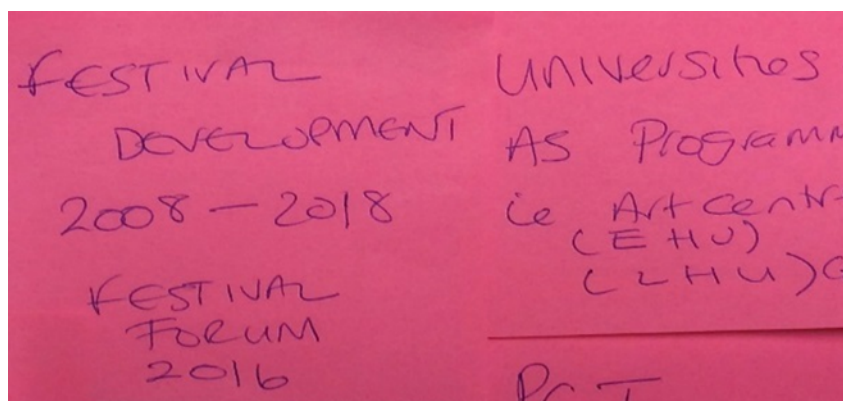 FESTIVAL
DEVELOPMENT
2008 – 2018
FESTIVAL
FORUM
2016
Universities
As Programm
ie Art Centr
(EHU)
(LHU)